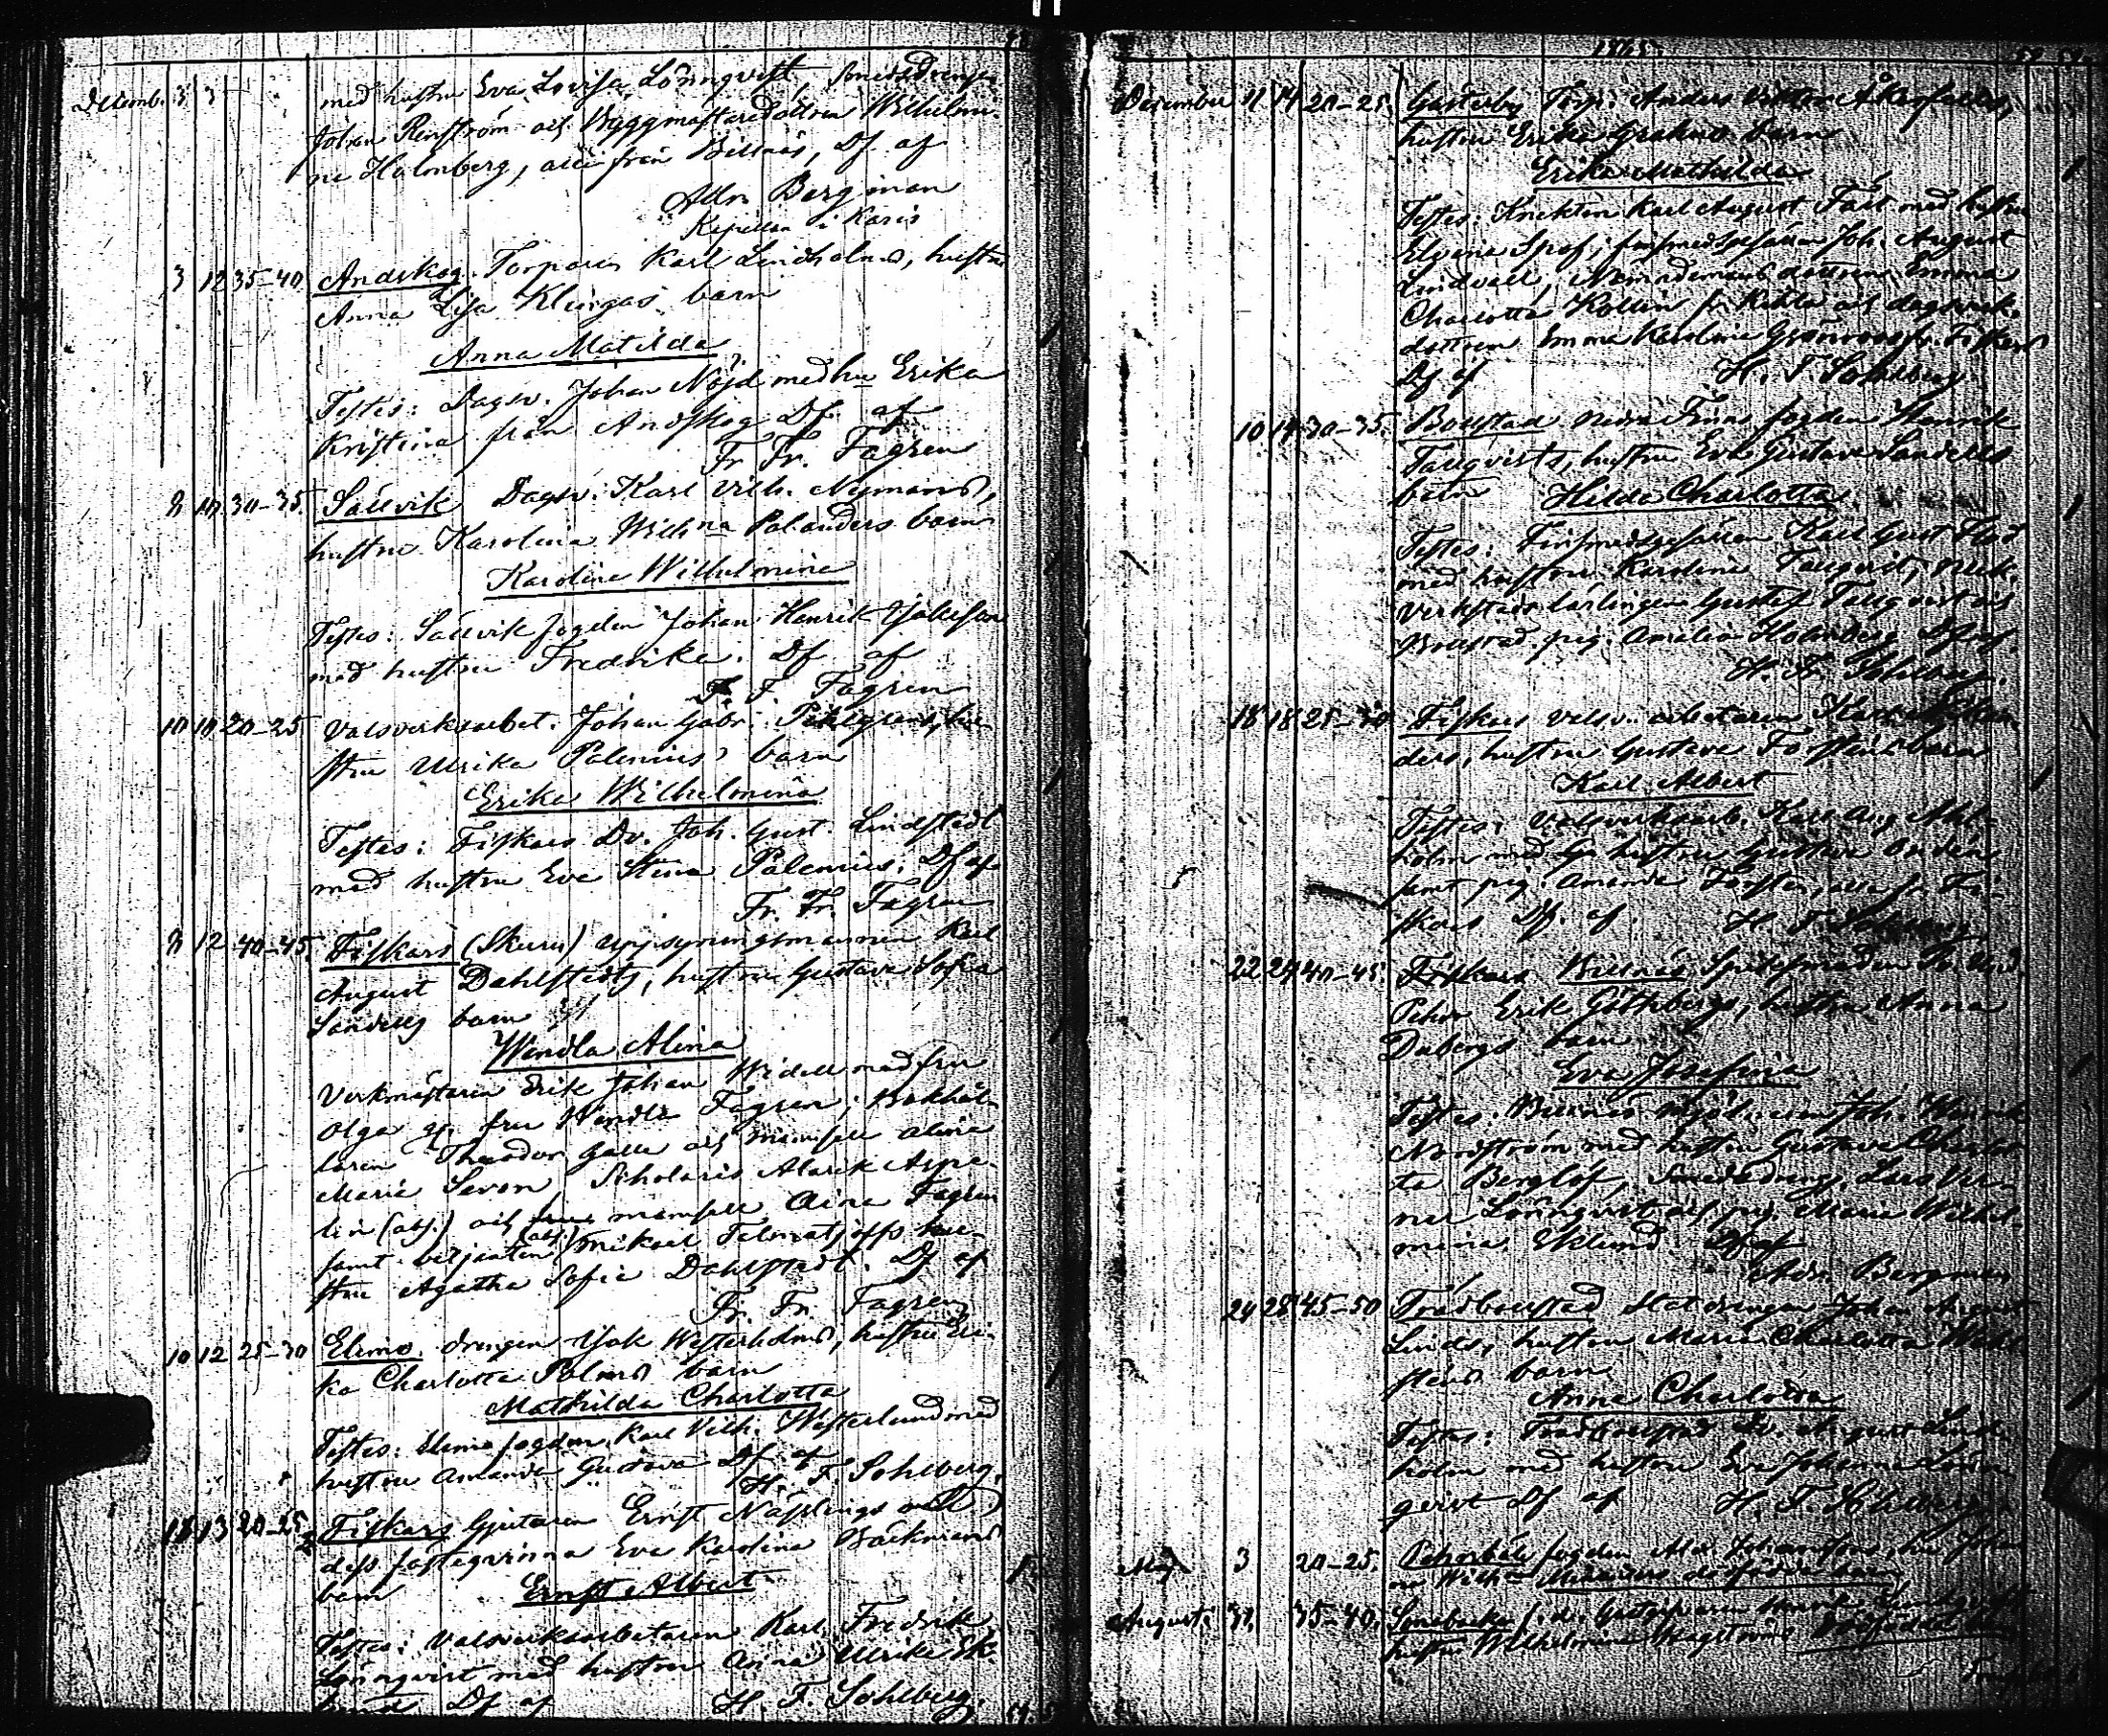 Decemb. 3 3 med hustru Eva Lovisa Lönnqvist, smedsdrengen
Johan Renström och Byggmästaredottren Wilhelmi-
na Holmberg, alla från Billnäs, Df af
Adr. Bergman
Kapellan i Karis
3 12 35-40 Andskog. Torparen Karl Lindholms, hustru
Anna Lisa Klingas barn
Anna Matilda
Testes: Dagsv. Johan Nöjd med hu Erika
Kristina från Andskog Df. af
Fr. Fr. Fagren
8 10 30-35. Sällvik Dagsv. Karl Vilh. Nymans,
hustru Karolina Wilhna Palanders barn
Karolina Wilhelmina
Testes: Sällvik fogden Johan Henrik
med hustru Fredrika. Df af
F. F. Fagren
10 10 20-25 Valsverksarbet. Johan Gabr. hu-
stru Ulrika Palenius' barn
Erika Wilhelmina
Testes: Fiskars Dv. Joh. Gust. Lindstedt
med hustru Eva Stina Palenius. Df af
Fr. Fr. Fagren
8 12 40-45. Fiskars (Skuru) uppsyningsmannen Karl
August Dahlstedts, hustru Gustava Sofia
Sandells barn
Wendla Alina
Verkmästaren Erik Johan Widell med fru
Olga fru Wendla Fagren; Bokhål-
laren Theodor Galle och mamsell Alina
Maria Savon Scholaris Alarik Aspe-
lin (abs.) och mamsell Aina Fagren
samt (abs.) Mikael hu-
stru Agatha Sofia Dahlstedt. Df af
Fr. Fr. Fagren
10 12 25-30 Elimo. drengen Isak Westerholms, hustru Eri-
ka Charlotta Palmrs barn
Mathilda Charlotta
Testes: Elimo fogden Karl Vilh. Westerlund med
hustru Amanda Gustava Df. af
H. F. Sohlberg.
18 13 20-25 Fiskars Gjutaren Ernst Näslings och
dess fästeqvinna Eva Karolina Backmans
barn Ernst Albert
Testes: Valsverksarbetaren Karl Fredrik
Lönnqvist med hustru Anna Ulrika Ek-
lund Df af H. F. Sohlberg.
1865
December 11 14 20-25. Torp. Anders Viktor Åkerfelts,
hustru Erika barn
Erika Mathilda
Testes: Knekten Karl August Fast med hustru
Elvira Spof, finsmedsgesällen Joh. August
Lindvall, Nämndemansdottren Emma
Charlotta Kollin fr. och dagsverk.
dottren Emma Karolina Grönroos fr. Fiskars
Df af H. F. Sohlberg
10 14 30-35. Bollstad Nedra Finns fogden Henrik
Tallqvists, hustru Eva Gustava Sandells
barn Hilda Charlotta
Testes: Finsmedsgesällen Karl Gust
med hustru Karolina Tallqvist, Mek.
verkstads lärlingen Gustaf Tallqvist och
Bollstad pig. Amalia Holmberg Df af
H. F. Sohlberg.
18 18 25-30 Fiskars valsv. arbetaren Karl
ders, hustru Gustava Forstens barn
Karl Albert
Testes: Valsverksarb. Karl Aug. Mal-
holm med hustru Gustava
samt pig. Amanda Forsten, alla fr. Fi-
skars Df. af. H. F. Sohlberg.
22 24 40-45. Fiskars Billnäs
Pehr Erik Göthbergs, hustru Anna
Dabergs barn
Eva Josefina
Testes: Billnäs Joh. Henrik
Nordström med hustru Gustava Charlot-
ta Berglöf, Smedsdreng. Lars Ver-
ner Lönnqvist och pig. Maria Wilhel-
mina Eklund Df af
Adr. Bergman
24 28 45-50 Trädbollstad Statdrengen Johan August
Linds, hustru Maria Charlotta
stens barn
Anna Charlotta
Testes: Trädbollstad Dv. August Lind-
holm med hustru Eva Johanna Lönn-
qvist Df af H. F. Sohlberg
Maj 3 20-25. fogden Alex. Johanssons, hu Johan-
na Wilhna dödfödda barn
Augusti 31. 35-40. Henrik Lindqvist
hustru Wilhelmina Hagströms dödfödda barn